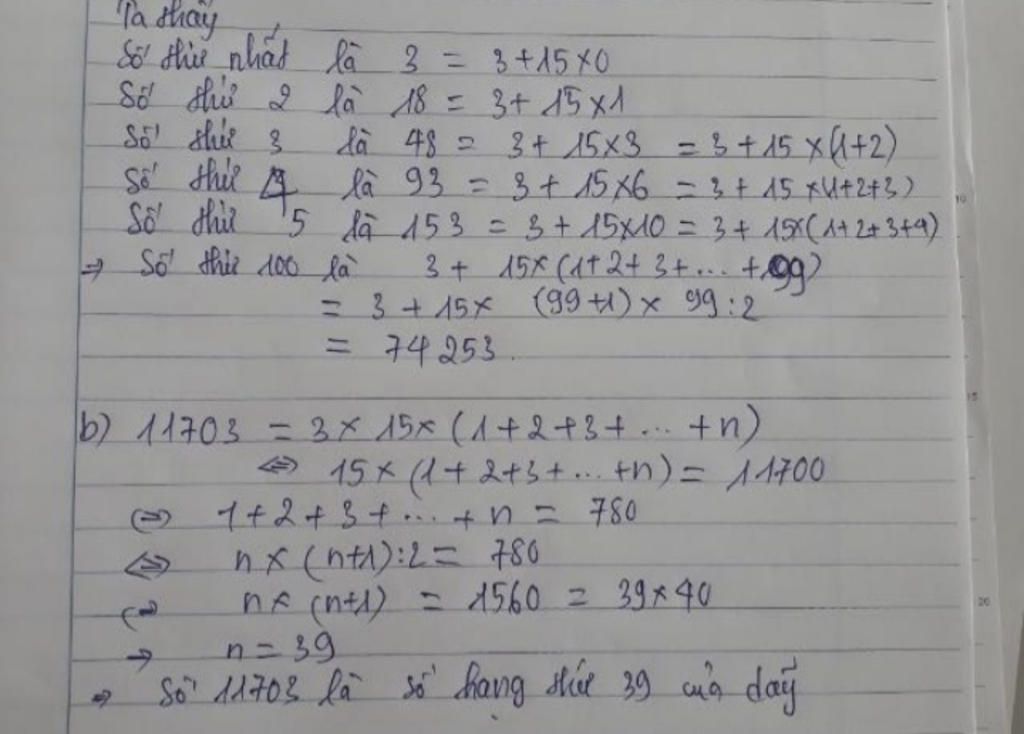 Ta thấy
Số thứ nhất là 3 = 3+15×0
Số thứ 2 là 18 = 3+ 15×1
Số thứ 3 là 48 = 3+ 15×3 = 3+15×(1+2)
Số thứ 4 là 93 = 3+ 15×6 = 3+ 15×(1+2+3)
Số thứ 5 là 153 = 3+15×10 = 3+ 15×(1+2+3+4)
⇒ Số thứ 100 là 3+ 15×(1+2+3+...+99)
= 3+15× (99+1)× 99:2
= 74253.
b) 11703 = 3× 15×(1+2+3+...+n)
⇔ 15×(1+2+3+...+n)= 11700
⇔ 1+2+3+...+n = 780
⇔ n×(n+1):2= 780
⇔ n×(n+1) = 1560 = 39×40
→ n=39
⇒ Số 11703 là số hạng thứ 39 của dãy
10
15
20